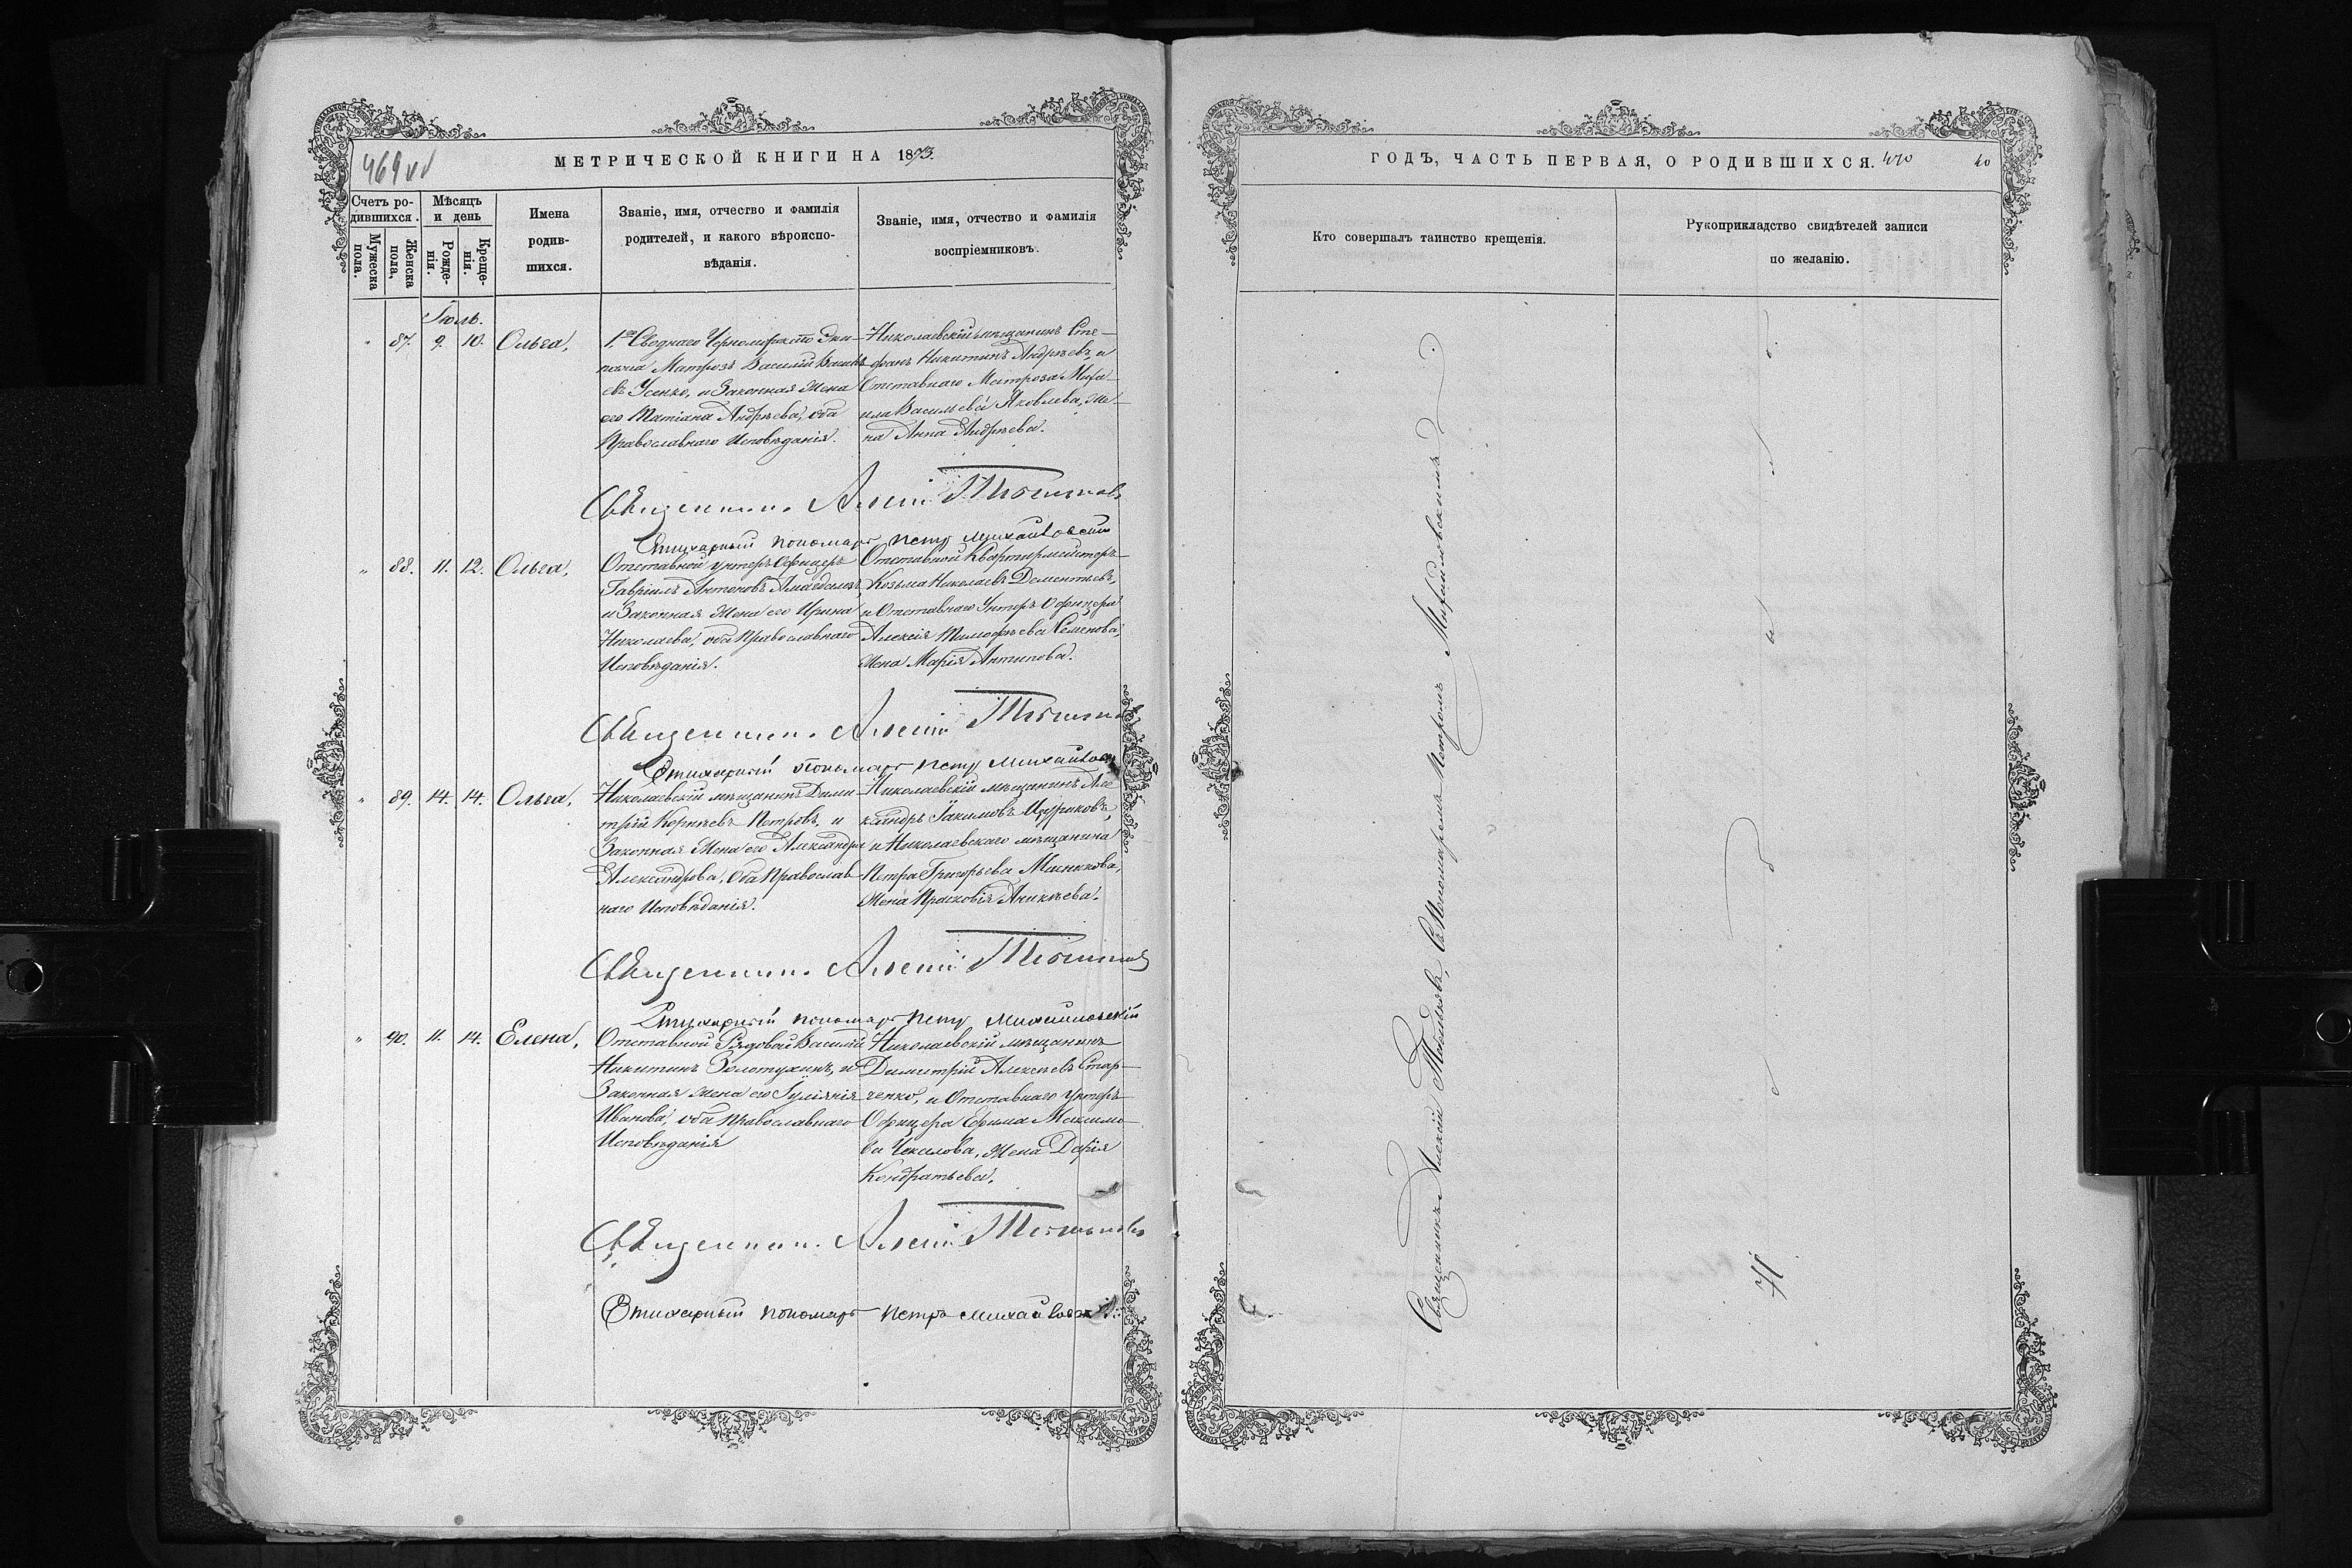 469 об
МЕТРИЧЕСКОЙ КНИГИ НА 1873.
Счетъ ро-
дившихся.
Мужеска
пола.
Женска
пола,
Мѣсяцъ
и день
Рожде-
нія.
Креще-
нія.
Имена
родив-
шихся.
Званіе, имя, отчество и фамилія
родителей, и какого вѣроиспо-
вѣданія.
Званіе, имя, отчество и фамилія
воспріемниковъ.
Іюль.
" 87. 9. 10. Ольга,
1го Своднаго Черноморскаго Эки-
пажа Матрозъ Василій Василь
евъ Усенко, и Законная Жена
его Татіана Андрѣева, оба
Православнаго Исповѣданія.
Николаевскій мѣщанинъ Сте-
фанъ Никитинъ Андрѣевъ, и
Отставнаго Матроза Миха-
ила Васильева Яковлева, же-
на Анна Андрѣева.
Священник Алексій
Стихарный пономарь Петръ Михайловскій
" 88. 11. 12. Ольга,
Отставной унтеръ Офицеръ
Гавріилъ Антоновъ
и Законная Жена его Ирина
Николаева, оба Православнаго
Исповѣданія.
Отставной Квартирмейстеръ
Козьма Николаевъ Дементьевъ,
и Отставнаго Унтеръ Офицера
Алексія Тимофѣева Семенова,
Жена Марія Антипова.
Священник Алексій
Стихарный пономарь Петръ Михайловскій
" 89. 14. 14. Ольга,
Николаевскій мѣщанинъ Дими-
трій Корнѣевъ Петровъ, и
Законная Жена его Александра
Александрова, Оба Православ
наго Исповѣданія.
Николаевскій мѣщанинъ Але
ксандръ Іакимовъ Цуриковъ,
и Николаевскаго мѣщанина
Петра Григорьева
Жена Прасковія Аникѣева.
Священник Алексій
Стихарный пономарь Петръ Михайловскій
" 90. 11. 14. Елена,
Отставной Рядовой Василій
Никитинъ Золотухинъ, и
Законная жена его Іуліанія
Иванова, оба Православнаго
Исповѣданія
Николаевскій мѣщанинъ
Димитрій Алексѣевъ Стар-
ченко, и Отставнаго унтеръ
Офицера Ефима Максимо-
ва Чекалова, Жена Дарія
Кондратьева.
Священник Алексій
Стихарный пономарь Петръ Михайловскій
ГОДЪ, ЧАСТЬ ПЕРВАЯ, О РОДИВШИХСЯ. 470 40
Кто совершалъ таинство крещенія.
Рукоприкладство свидѣтелей записи
по желанію.
Священникъ Алексій съ Пономаремъ Петромъ Михайловскимъ